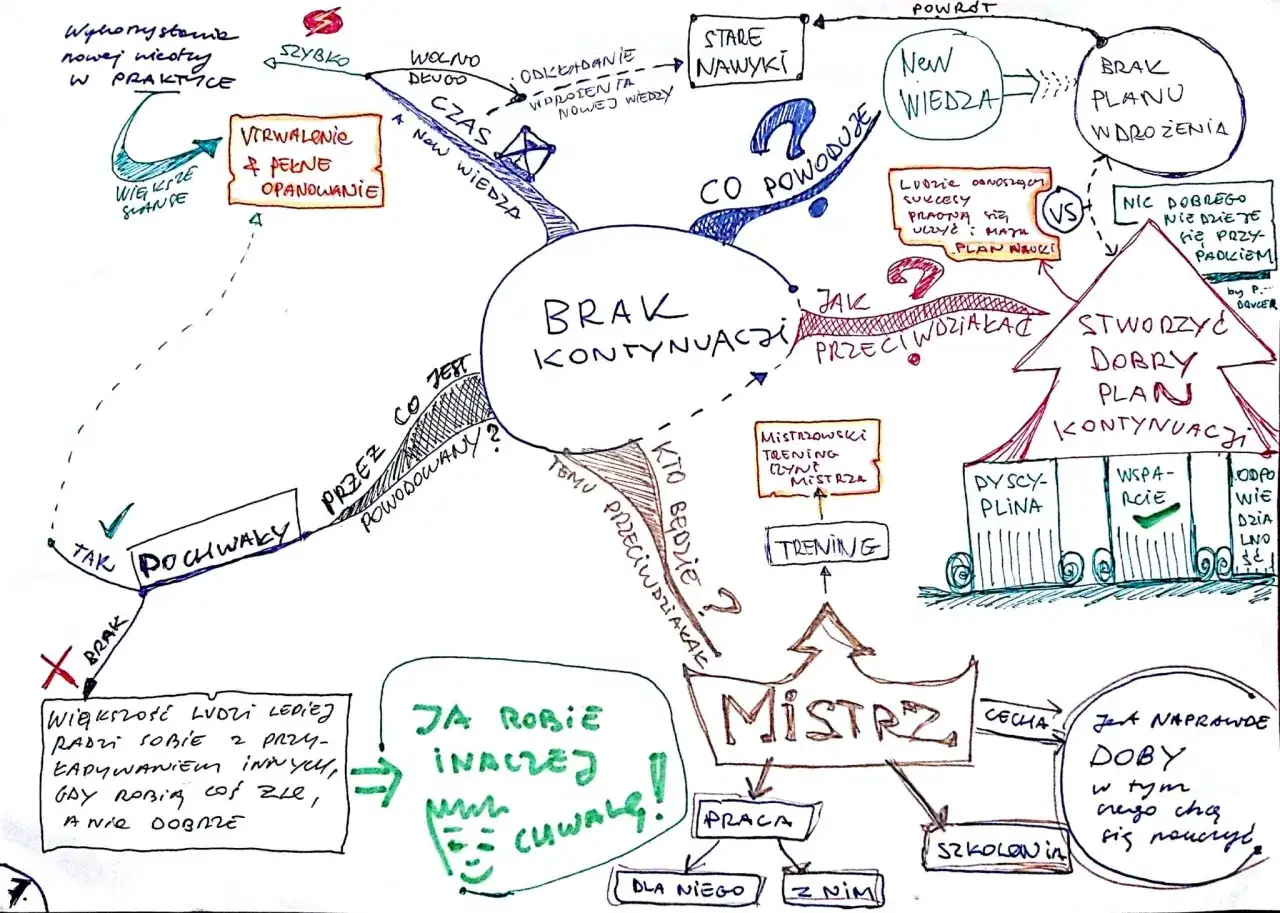 Wykorzystanie
nowej wiedzy
W PRAKTYCE
SZYBKO
WIĘKSZE
SZANSE
UTRWALENIE
& PEŁNE
OPANOWANIE
WOLNO
DŁUGO
CZAS
A NEW WIEDZA
ODKŁADANIE
WDROŻENIA
NOWEJ WIEDZY
STARE
NAWYKI
POWRÓT
NEW
WIEDZA
BRAK
PLANU
WDROŻENIA
CO POWODUJE
?
LUDZIE ODNOSZĄCY
SUKCESY
PRAGNĄ SIĘ
UCZYĆ i MAJĄ
PLAN NAUKI
VS
NIC DOBREGO
NIE DZIEJE
SIĘ PRZY-
PADKIEM
by P.
DRUCER
BRAK
KONTYNUACJI
JAK
?
PRZECIWDZIAŁAĆ
STWORZYĆ
DOBRY
PLAN
KONTYNUACJI
DYSCY-
PLINA
WSPA-
RCIE
ODPO
WIE
DZIA
LNO
ŚĆ
PRZEZ CO JEST
POWODOWANY?
POCHWAŁY
TAK
BRAK
WIĘKSZOŚĆ LUDZI LEPIEJ
RADZI SOBIE Z PRZY-
ŁAPYWANIEM INNYCH,
GDY ROBIĄ COŚ ŹLE,
A NIE DOBRZE
JA ROBIE
INACZEJ
CHWALĘ!
KTO BĘDZIE ?
TEMU PRZECIWDZIAŁAŁ
MISTRZOWSKI
TRENING
CZYNI
MISTRZA
TRENING
MiSTRZ
CECHA
JEST NAPRAWDE
DOBY
w tym
czego chcą
się nauczyć
PRACA
DLA NIEGO
Z NIM
SZKOLENIA
7.